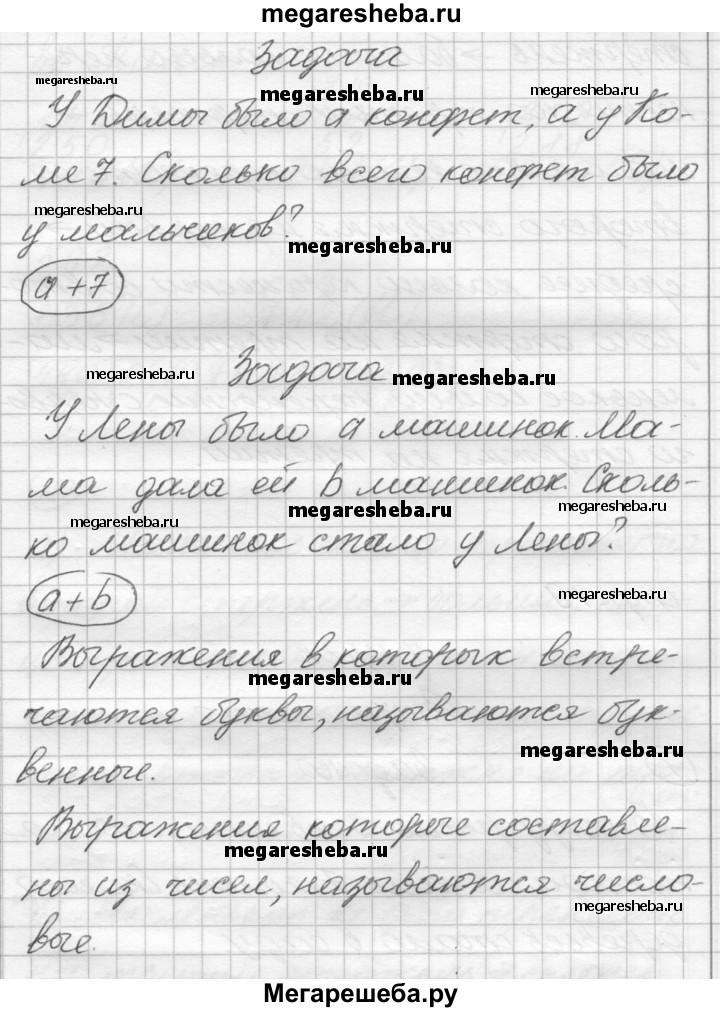 megaresheba.ru
Задача
megaresheba.ru
megaresheba.ru
У Димы было а конфет, а у Ко-
ме 7. Сколько всего конфет было
megaresheba.ru
у мальчиков?
megaresheba.ru
а + 7
megaresheba.ru
Задача
megaresheba.ru
У Лены было а машинок. Ма-
ма дала ей b машинок. Сколь-
megaresheba.ru
megaresheba.ru
megaresheba.ru
ко машинок стало у Лены?
a + b
megaresheba.ru
Выражения в которых встре-
megaresheba.ru
чаются буквы, называются бук-
megaresheba.ru
венные.
Выражения которые составле-
megaresheba.ru
ны из чисел, называются число-
megaresheba.ru
вые.
Мегарешеба.ру